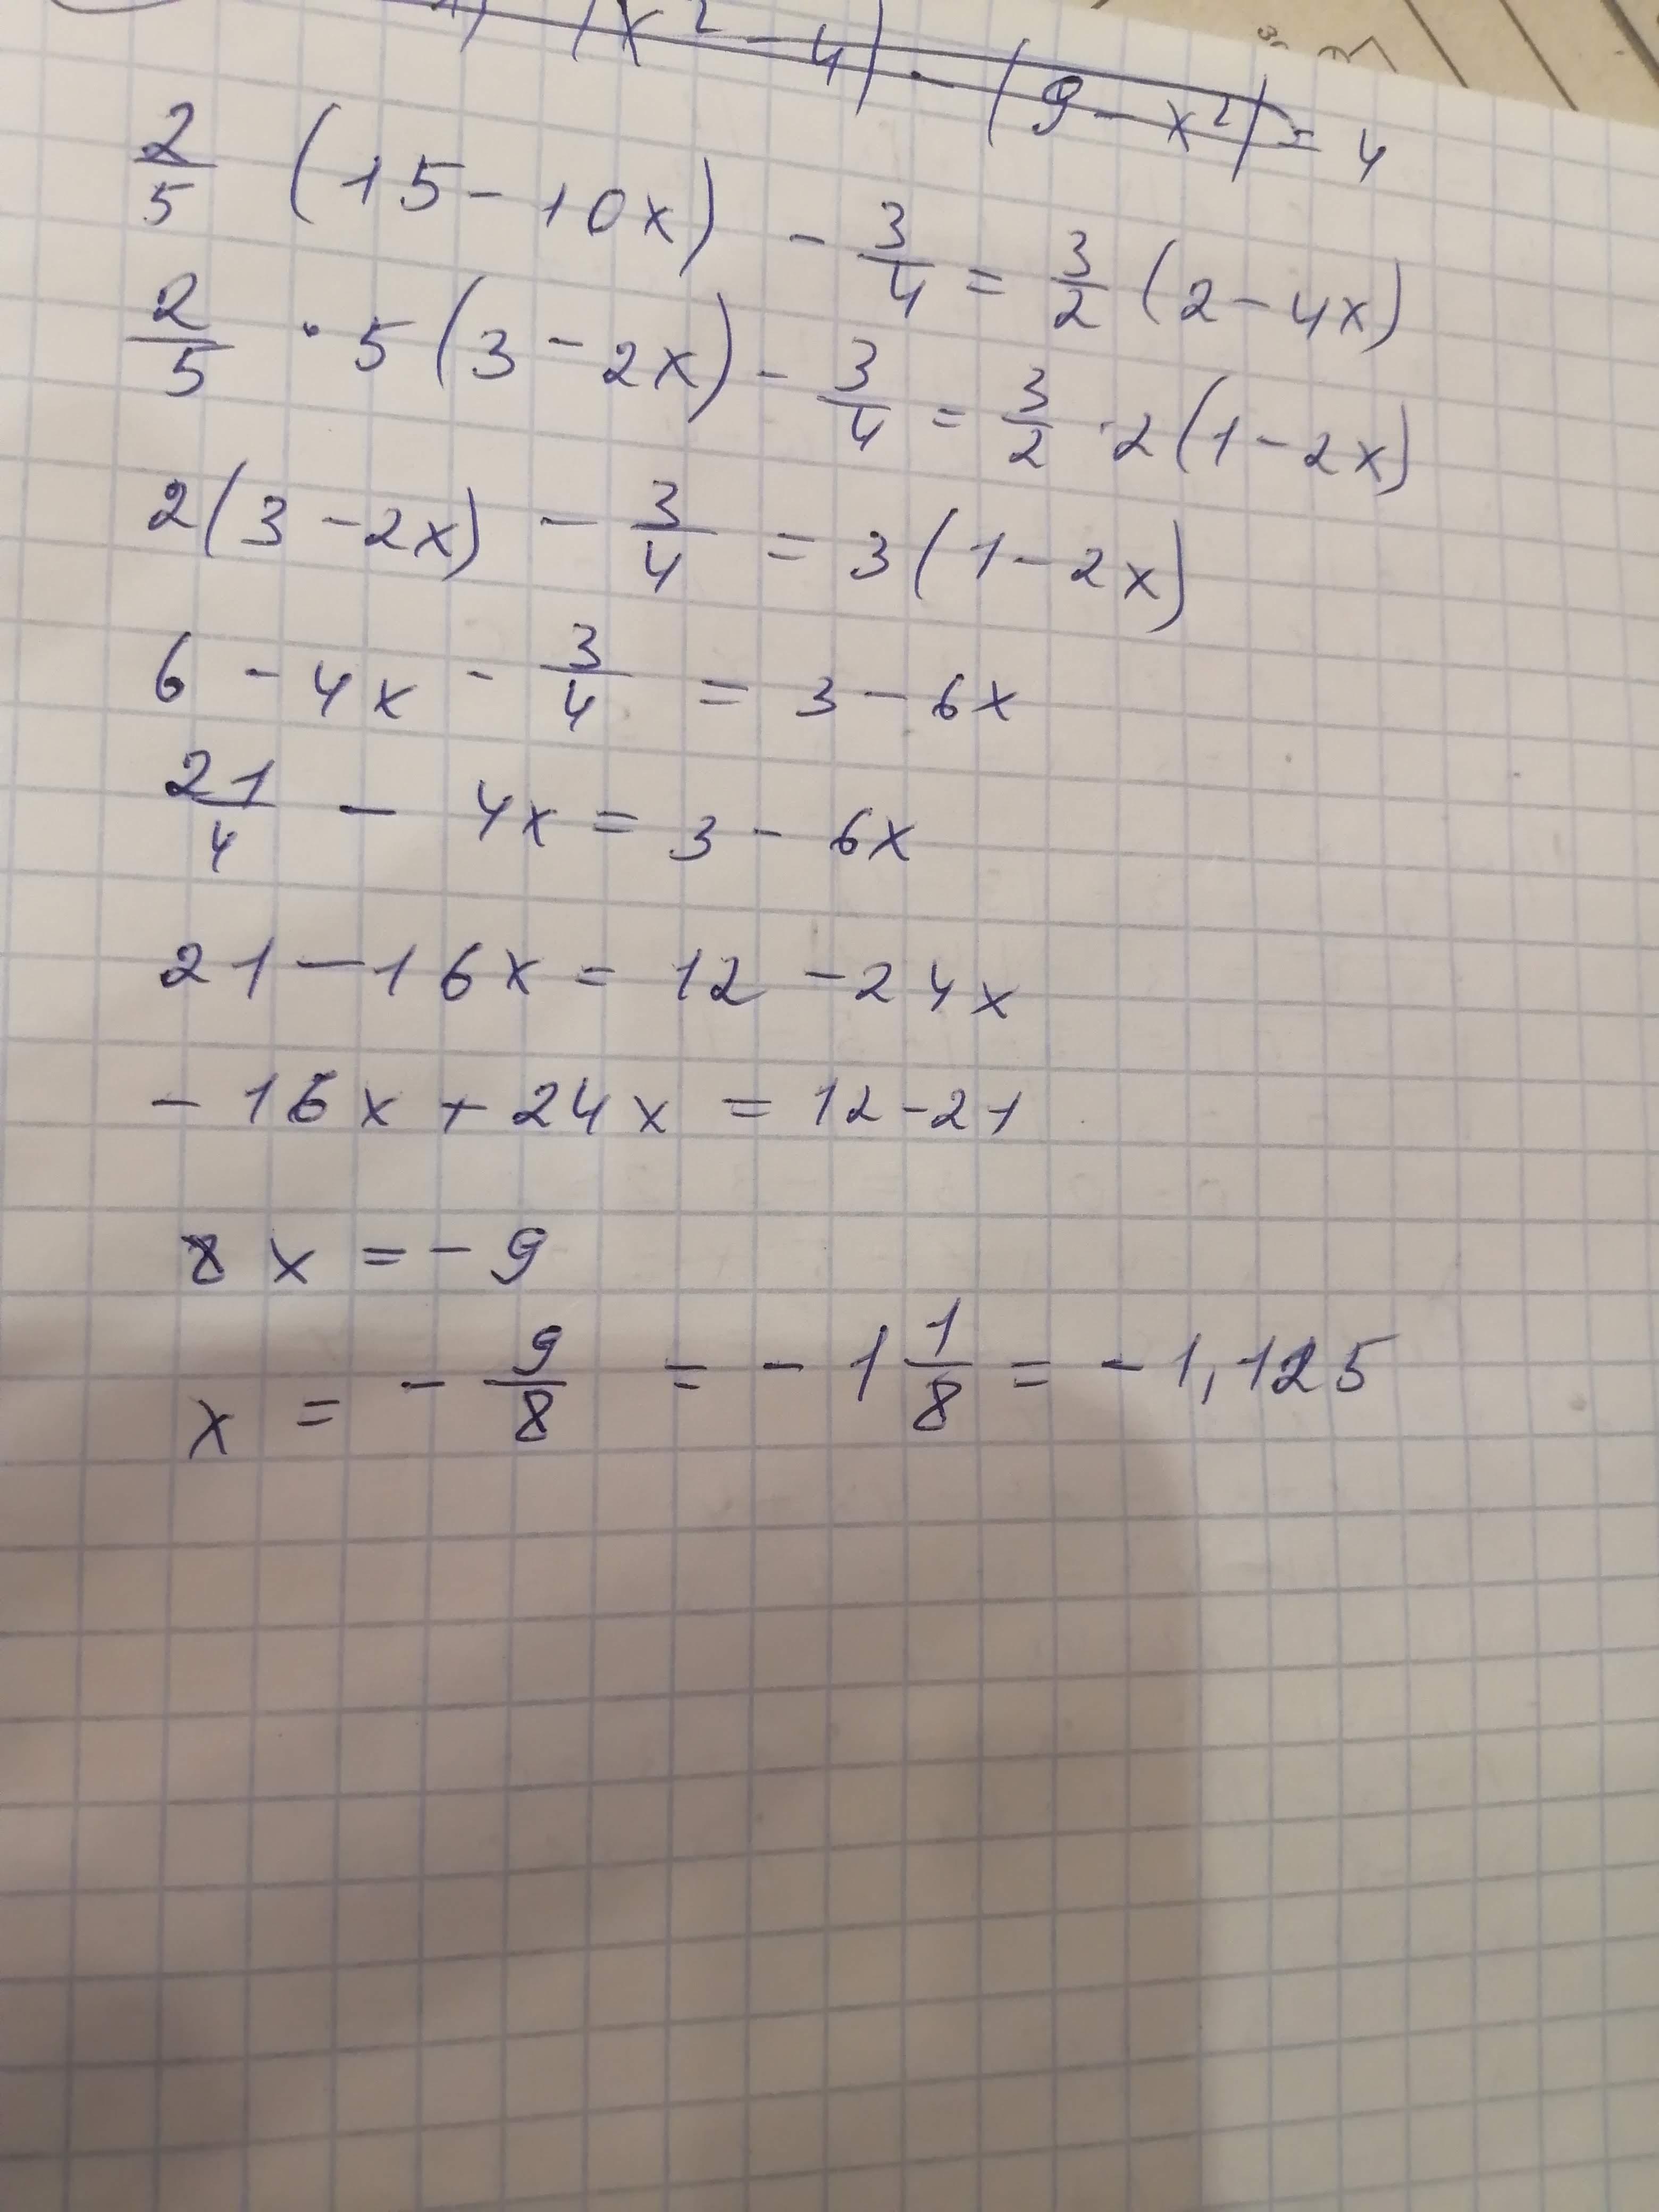 (x² - 4) - (9 - x²) = 4
2/5 (15 - 10x) - 3/4 = 3/2 (2 - 4x)
2/5 · 5(3 - 2x) - 3/4 = 3/2 · 2(1 - 2x)
2(3 - 2x) - 3/4 = 3(1 - 2x)
6 - 4x - 3/4 = 3 - 6x
21/4 - 4x = 3 - 6x
21 - 16x = 12 - 24x
- 16x + 24x = 12 - 21
8x = - 9
x = - 9/8 = - 1 1/8 = - 1,125